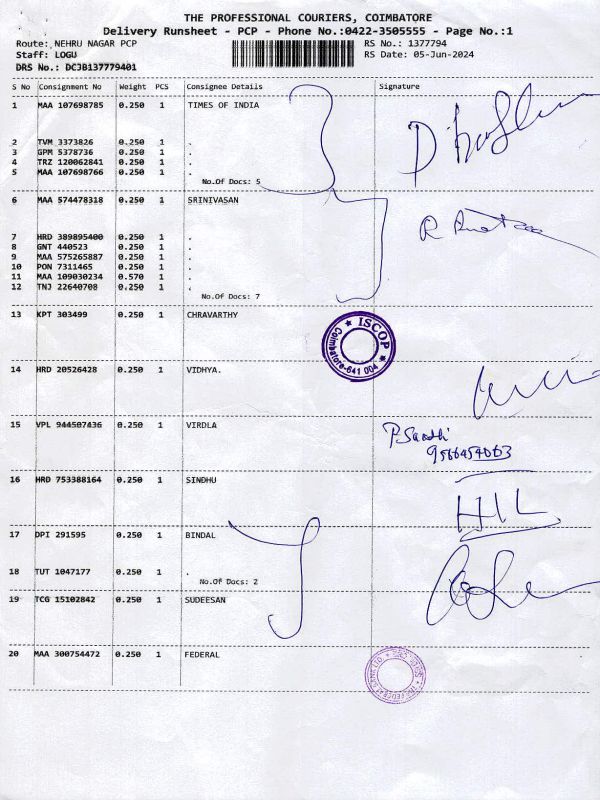 THE PROFESSIONAL COURIERS, COIMBATORE
Delivery Runsheet - PCP - Phone No.:0422-3505555 - Page No.:1
Route: NEHRU NAGAR PCP RS No.: 1377794
Staff: LOGU RS Date: 05-Jun-2024
DRS No.: DCJB137779401
S No Consignment No Weight PCS Consignee Details Signature
1 MAA 107698785 0.250 1 TIMES OF INDIA
2 TVM 3373826 0.250 1 .
3 GPM 5378736 0.250 1 .
4 TRZ 120062841 0.250 1 .
5 MAA 107698766 0.250 1 .
No.Of Docs: 5
6 MAA 574478318 0.250 1 SRINIVASAN
7 HRD 389895400 0.250 1 .
8 GNT 440523 0.250 1 .
9 MAA 575265887 0.250 1 .
10 PON 7311465 0.250 1 .
11 MAA 109030234 0.570 1 .
12 TNJ 22640708 0.250 1 .
No.Of Docs: 7
13 KPT 303499 0.250 1 CHRAVARTHY
★ ISCOP ★
Coimbatore-641 004
14 HRD 20526428 0.250 1 VIDHYA.
15 VPL 944507436 0.250 1 VIRDLA
16 HRD 753388164 0.250 1 SINDHU
HIL
17 DPI 291595 0.250 1 BINDAL
18 TUT 1047177 0.250 1 .
No.Of Docs: 2
19 TCG 15102842 0.250 1 SUDEESAN
20 MAA 300754472 0.250 1 FEDERAL